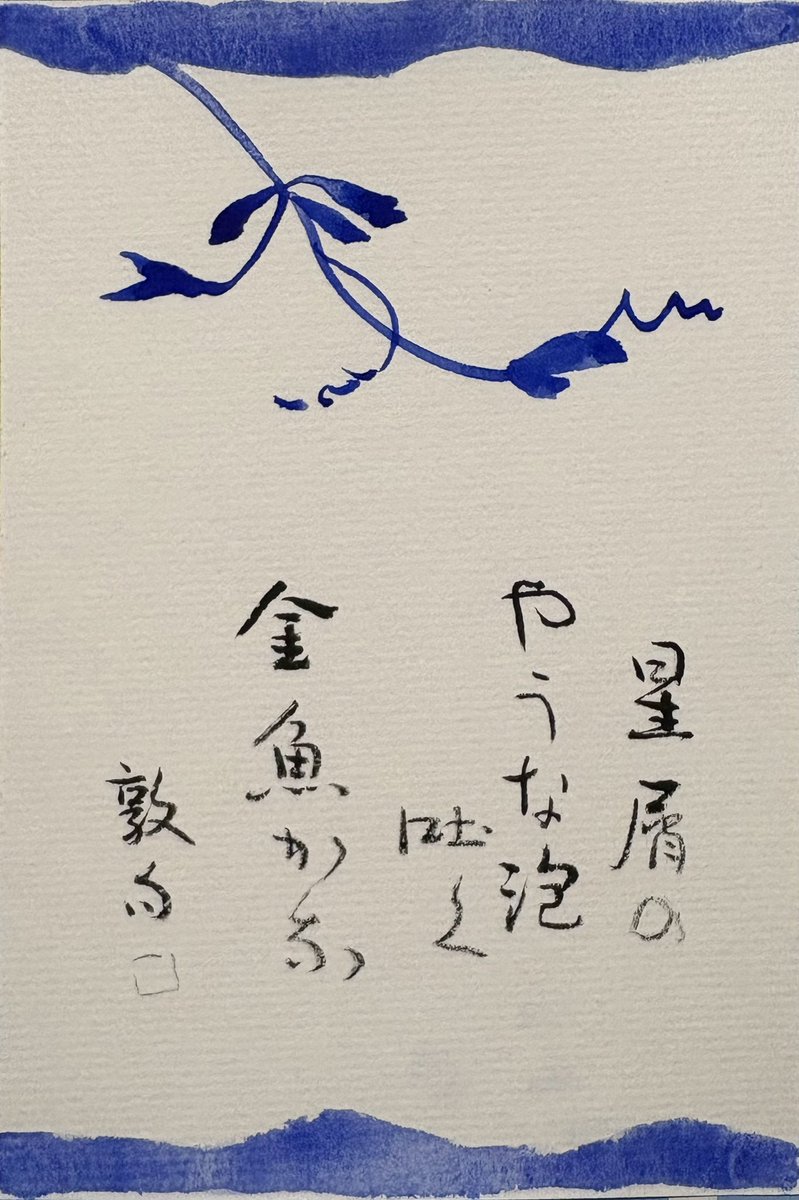 星屑の
やうな泡
吐く
金魚かな
敦